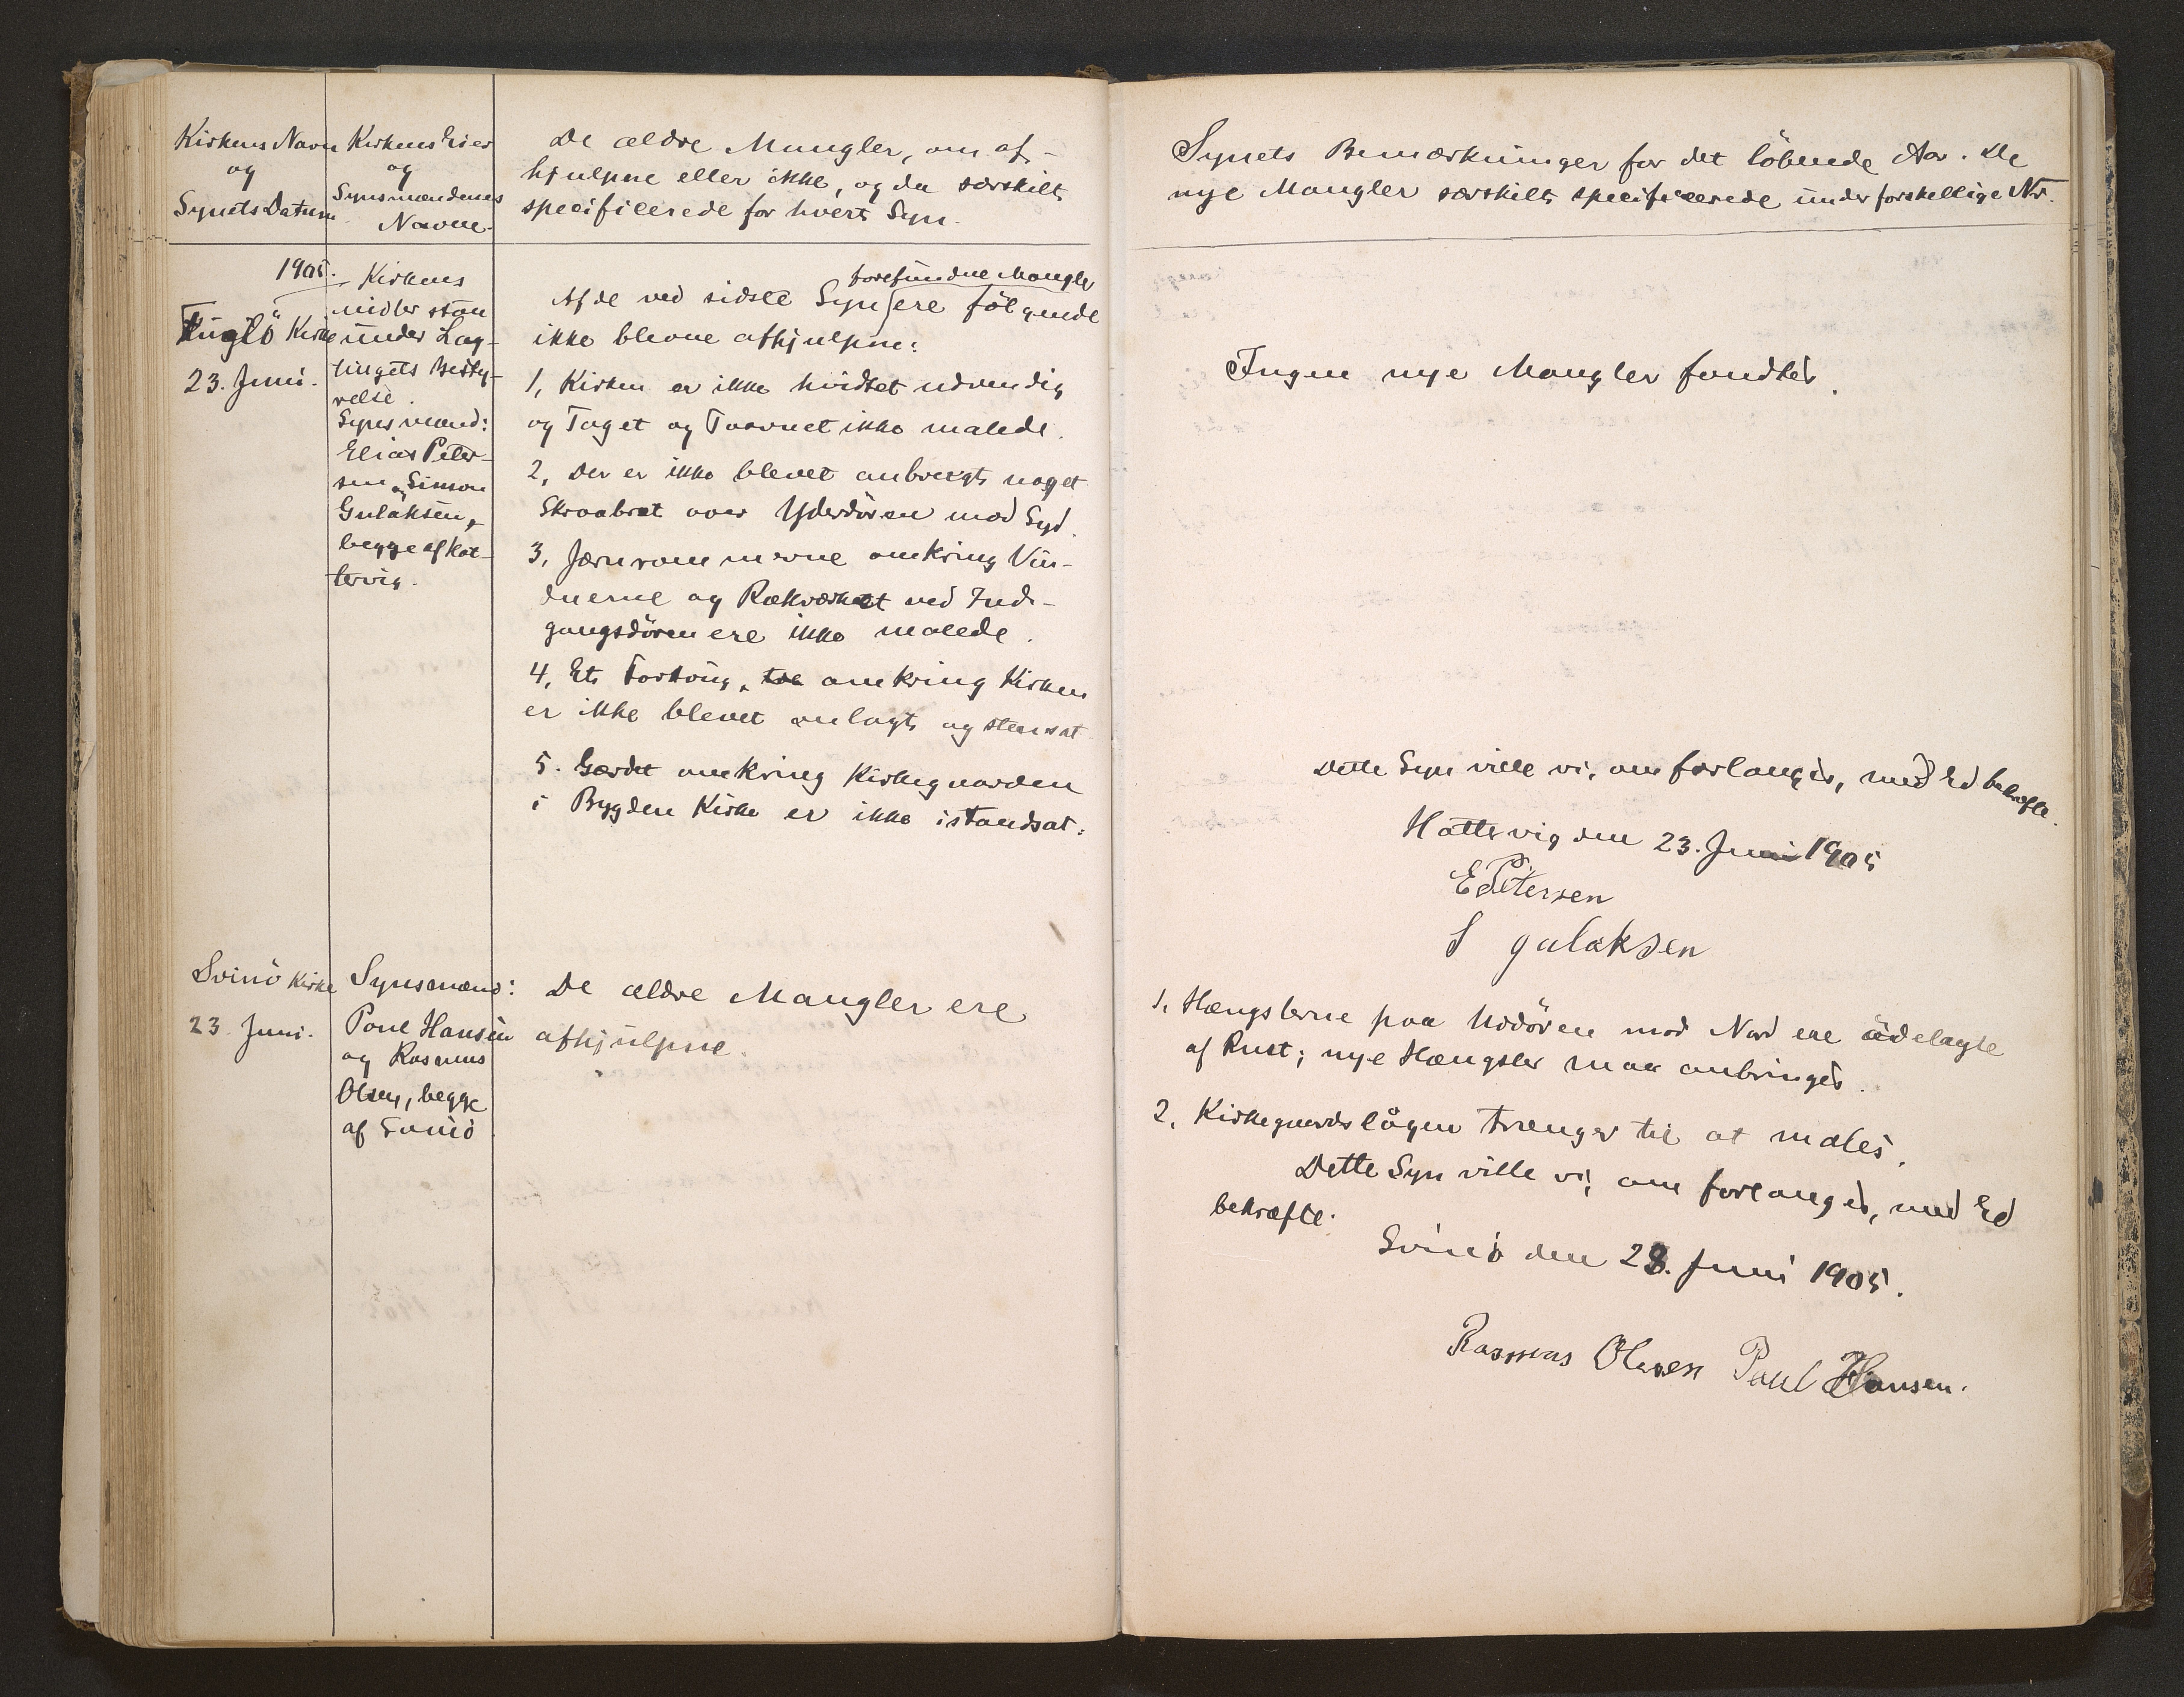 Kirkens Navn
og
Synets Datum
Kirkens Eier
og
Synsmændenes
Navne.
De ældre Mangler, om af-
hjulpne eller ikke, og da særskilt
specificerede for hvert Syn.
1905.
Fuglö Kirke
23. Juni.
Kirkens
midler staa
under Lag-
tingets Besty-
relse.
Synsmænd:
Elias Peter-
sen og Simon
Gulaksen,
begge af Hat-
tervig.
forefundne Mangler
Af de ved sidste Syn ere fölgende
ikke blevne afhjulpne:
1, Kirken er ikke hvidtet udvendig
og Taget og Taarnet ikke malede.
2, Der er ikke blevet anbragt noget
Skraabræt over Yderdören mod Syd.
3, Jærnrammerne omkring Vin-
duerne og Rækværket ved Ind-
gangsdören ere ikke malede.
4, Et Fortoug, omkring Kirken
er ikke blevet anlagt og stensat
5. Gærdet omkring Kirkegaarden
i Bygden Kirke er ikke istandsat.
Svinö Kirke
23. Juni.
Synsmænd:
Poul Hansen
og Rasmus
Olsen, begge
af Svinö
De ældre Mangler ere
afhjulpne.
Synets Bemærkninger for det löbende Aar. De
nye Mangler særskilt specificerede under forskellige Nr.
Ingen nye Mangler fandtes.
Dette Syn ville vi, om forlanges, med Ed bekræfte.
Hattervig den 23. Juni 1905
E Petersen
S gulaksen
1, Hængslerne paa Uddören mod Nord ere ödelagte
af Rust; nye Hængsler maa anbringes.
2, Kirkegaardslågen trænger til at males.
Dette Syn ville vi, om forlanges, med Ed
bekræfte.
Svinö den 23. Juni 1905.
Rasmus Olesen Paul Hansen.